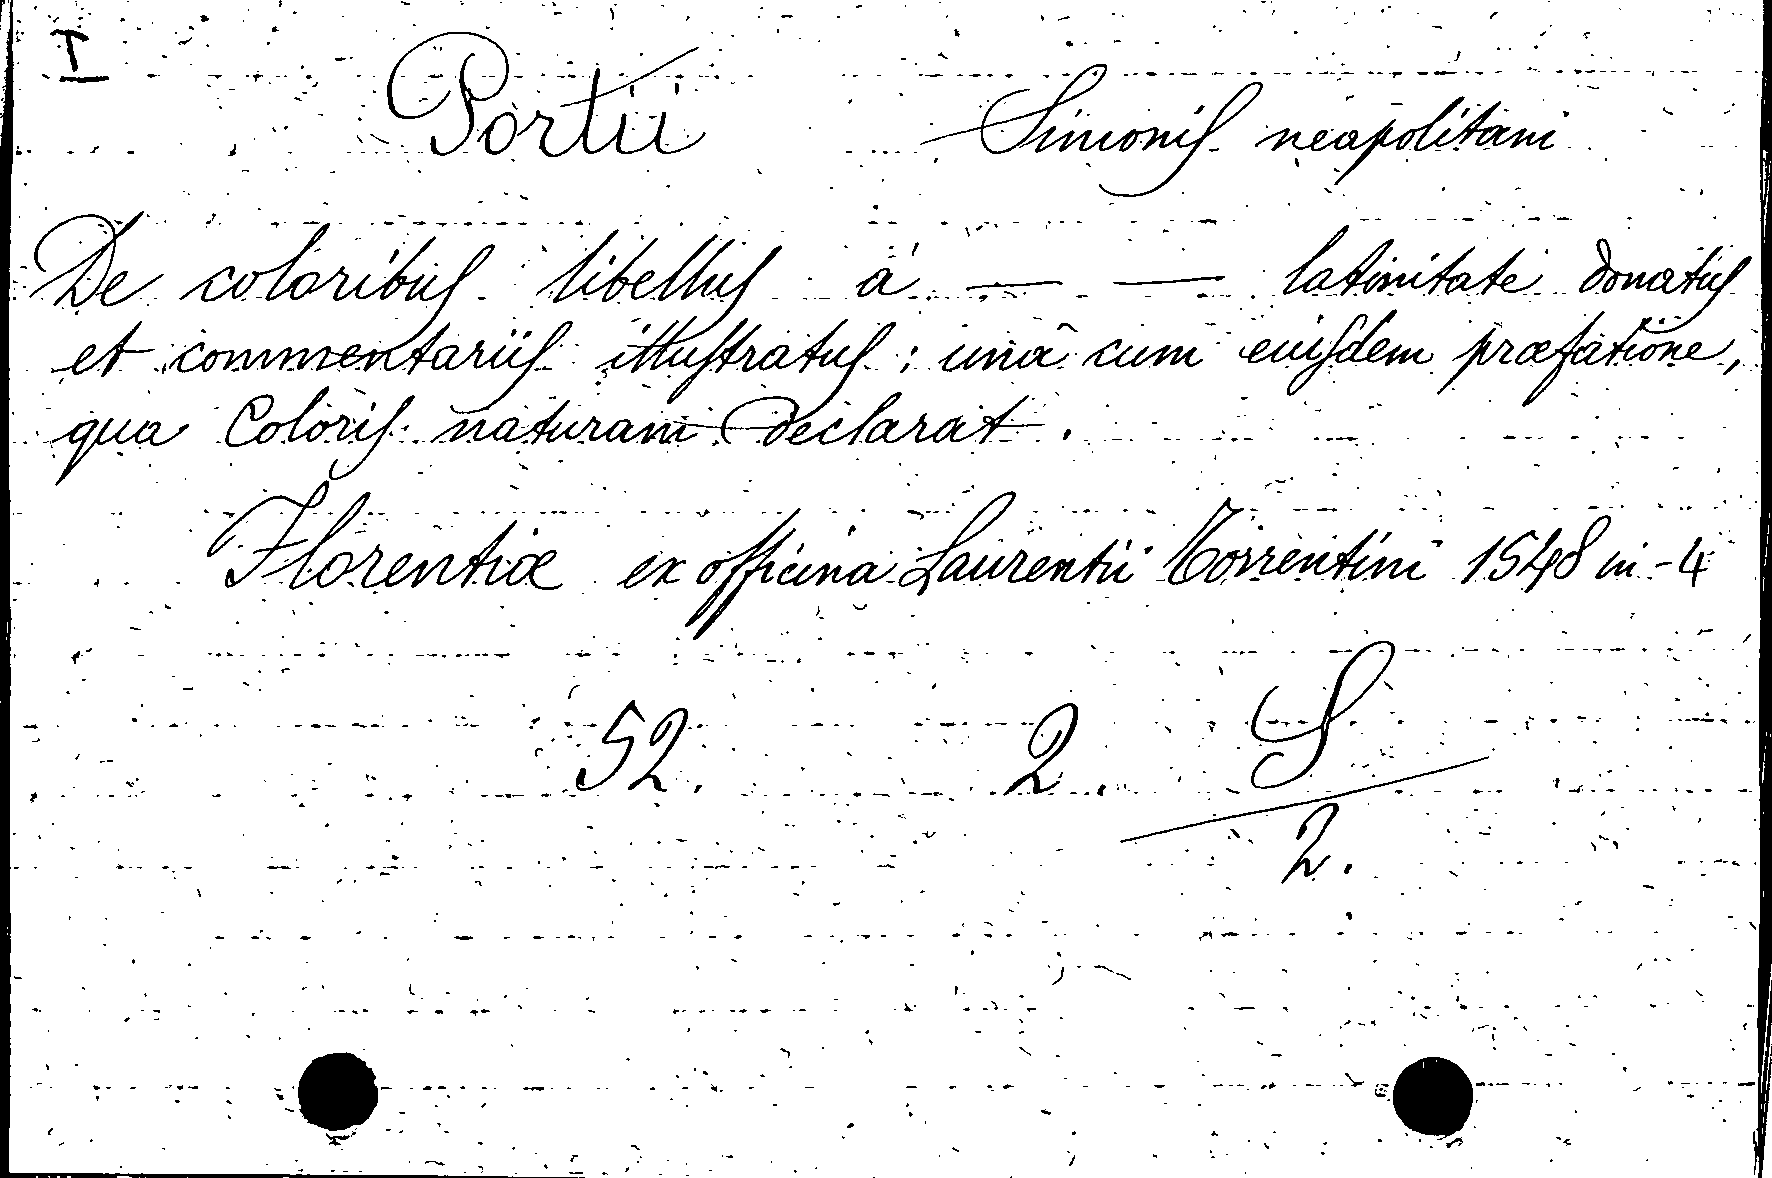 I
Portii Simonis neapolitani
De coloribus libellus à — — latinitate donatus
et commentariis illustratus : unâ cum eiusdem præfatione,
qua Coloris naturam declarat .
Florentiæ ex officina Laurentii Torrentini 1548 in-4
52. 2. S
2.